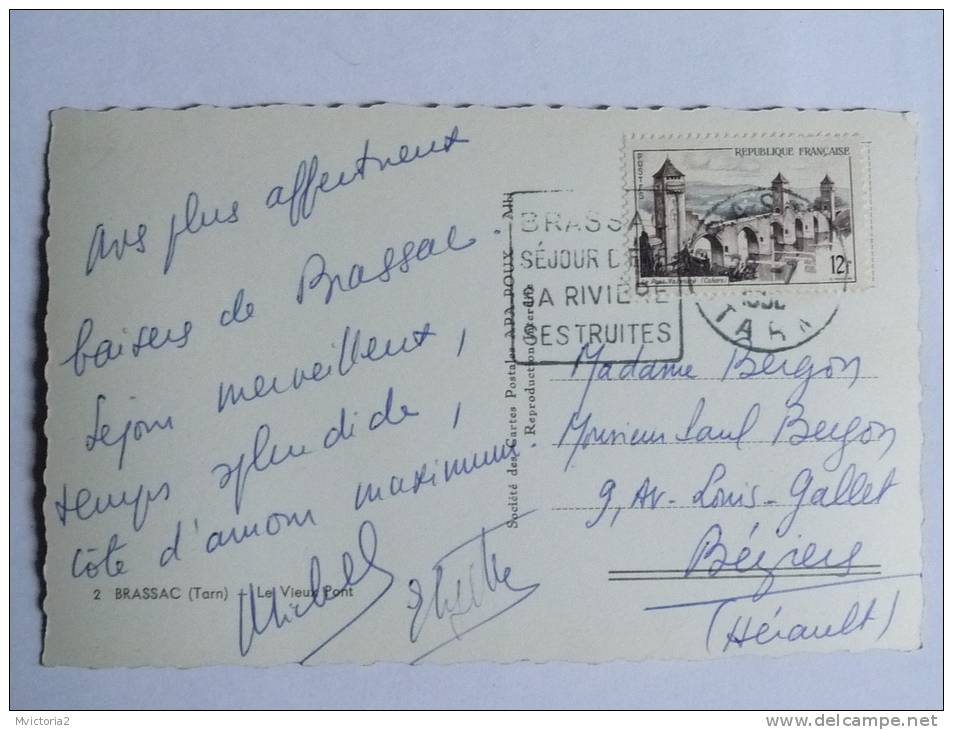 Nos plus affectueux
baisers de Brassac.
Séjour merveilleux,
temps splendide,
côte d'amour maximum.
2 BRASSAC (Tarn) - Le Vieux Pont
Société des Cartes Postales APA-POUX - Albi
Reproduction interdite
BRASSA
SÉJOUR D
SA RIVIÈRE
SES TRUITES
POSTES
REPUBLIQUE FRANÇAISE
12f
TARN
Madame Bergon
Monsieur Paul Bergon
9, Av. Louis-Gallet
Béziers
(Hérault)
Mvictoria2
www.delcampe.net